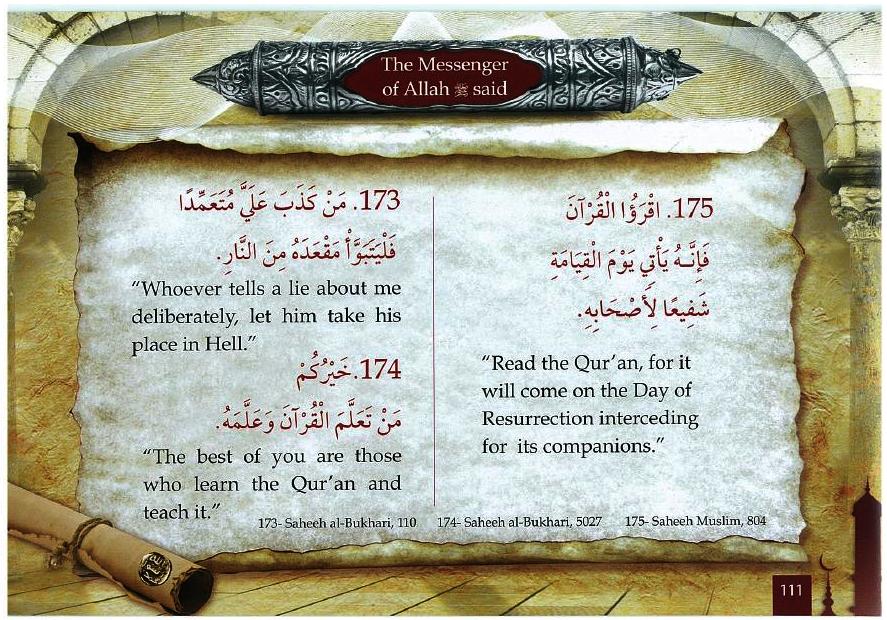 The Messenger
of Allah ﷺ said
173. مَنْ كَذَبَ عَلَيَّ مُتَعَمِّدًا
فَلْيَتَبَوَّأْ مَقْعَدَهُ مِنَ النَّارِ.
“Whoever tells a lie about me
deliberately, let him take his
place in Hell.”
174.خَيْرُكُمْ
مَنْ تَعَلَّمَ الْقُرْآنَ وَعَلَّمَهُ.
“The best of you are those
who learn the Qur’an and
teach it.”
175. اقْرَؤُا الْقُرْآنَ
فَإِنَّـهُ يَأْتِي يَوْمَ الْقِيَامَةِ
شَفِيعًا لِأَصْحَابِهِ.
“Read the Qur’an, for it
will come on the Day of
Resurrection interceding
for its companions.”
173- Saheeh al-Bukhari, 110 174- Saheeh al-Bukhari, 5027 175- Saheeh Muslim, 804
111